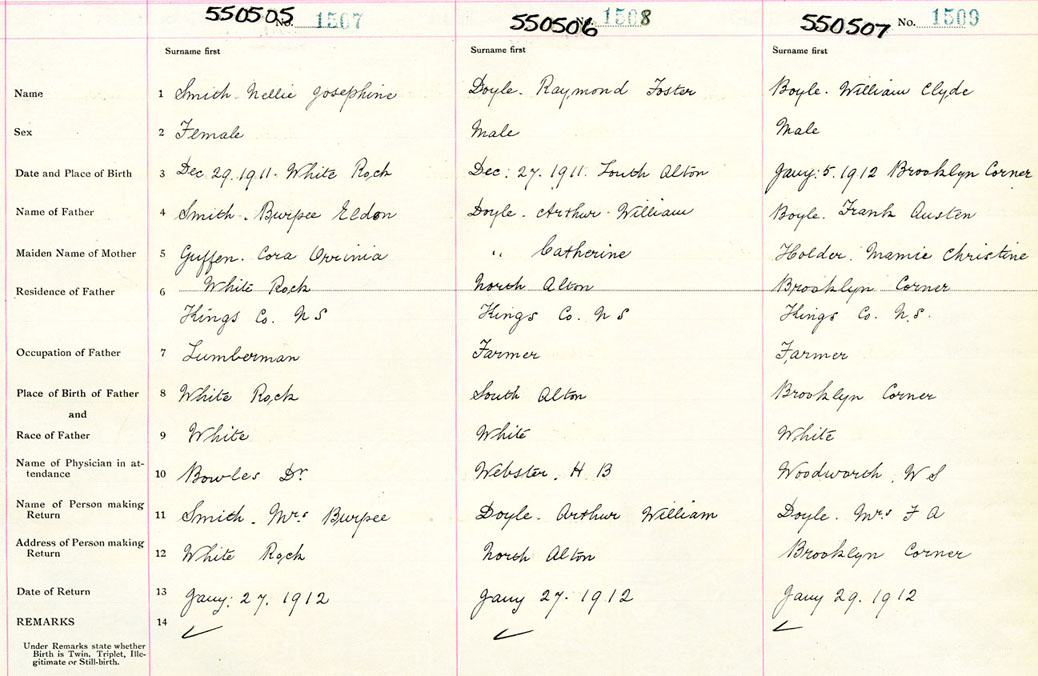 550505 No. 1507 550506 No. 1508 550507 No. 1509
Surname first Surname first Surname first
Name 1 Smith. Nellie Josephine Doyle. Raymond Foster Boyle. William Clyde
Sex 2 Female Male Male
Date and Place of Birth 3 Dec. 29. 1911. White Rock Dec: 27. 1911. South Alton Jany: 5. 1912 Brooklyn Corner
Name of Father 4 Smith. Burpee Eldon Doyle. Arthur. William Boyle. Frank Austen
Maiden Name of Mother 5 Guffen. Cora " Catherine Holder. Mamie Christine
Residence of Father 6 White Rock North Alton Brooklyn Corner
Kings Co. N S Kings Co. N S Kings Co. N.S.
Occupation of Father 7 Lumberman Farmer Farmer
Place of Birth of Father 8 White Rock South Alton Brooklyn Corner
and
Race of Father 9 White White White
Name of Physician in at-
tendance 10 Bowles Dr. Webster. H B Woodworth. W S
Name of Person making
Return 11 Smith. Mrs Burpee Doyle. Arthur William Doyle. Mrs F A
Address of Person making
Return 12 White Rock North Alton Brooklyn Corner
Date of Return 13 Jany: 27. 1912 Jany 27. 1912 Jany 29. 1912
REMARKS 14
Under Remarks state whether
Birth is Twin, Triplet, Ille-
gitimate or Still-birth.